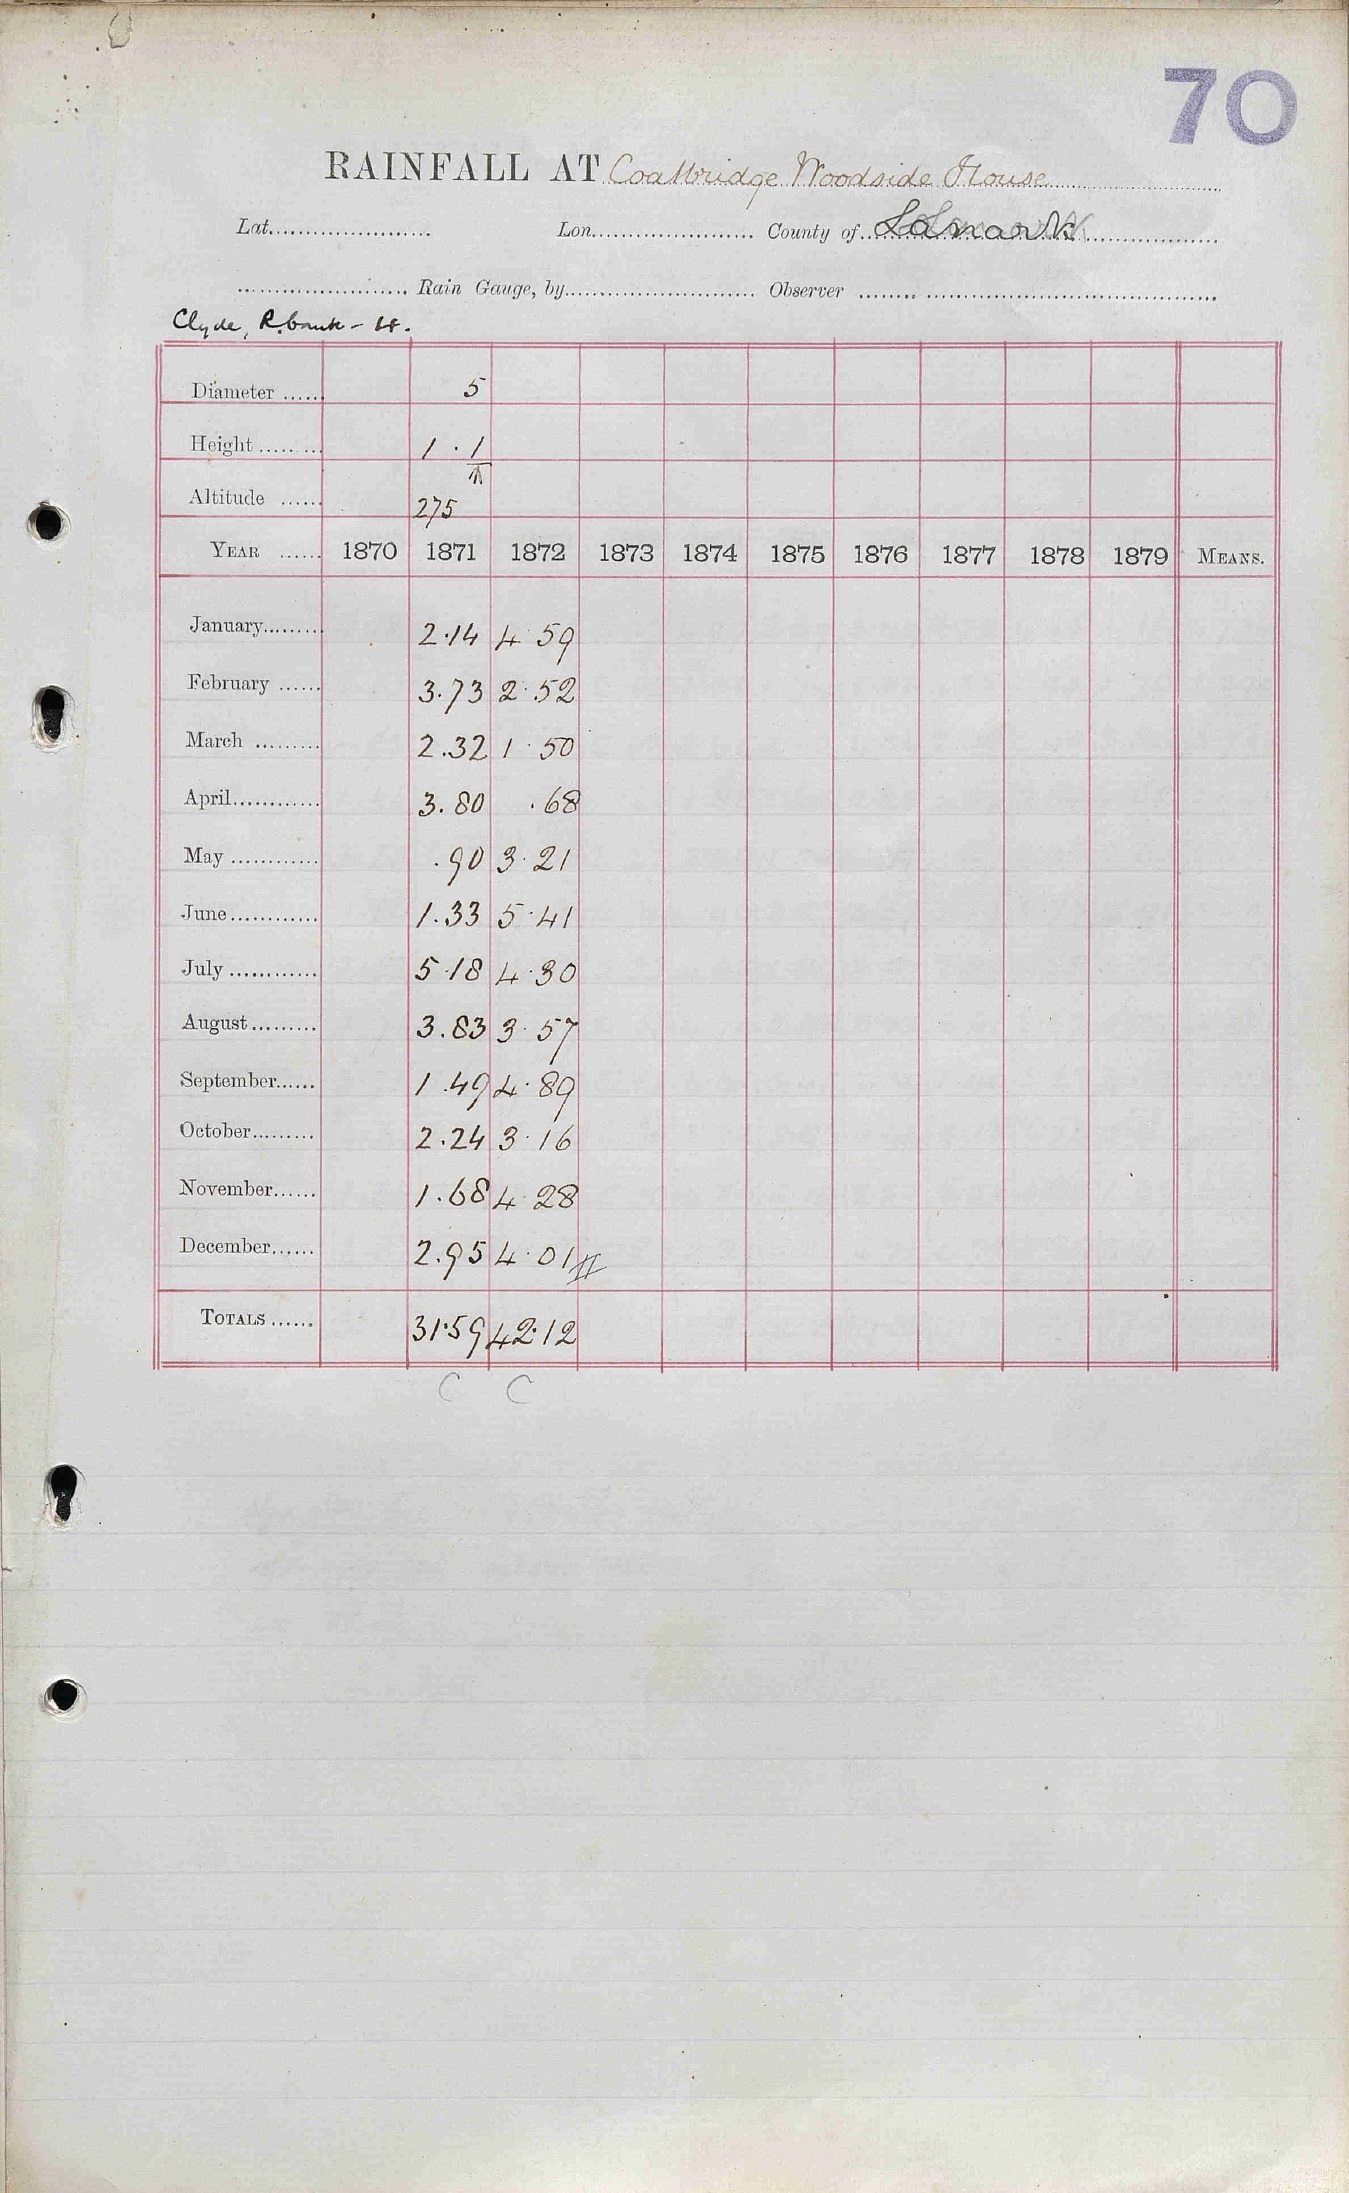 70
RAINFALL AT Coatbridge Woodside House
Lat. Lon. County of Lanark
Rain Gauge, by Observer
Clyde, R. bank -
Diameter 5
Height 1 . 1
Altitude 275
YEAR 1870 1871 1872 1873 1874 1875 1876 1877 1878 1879 MEANS.
January 2.14 4 59
February 3.73 2.52
March 2.32 1.50
April 3.80 .68
May .90 3.21
June 1.33 5.41
July 5.18 4.30
August 3.83 3.57
September 1.49 4.89
October 2.24 3.16
November 1.68 4.28
December 2.95 4.01
TOTALS 31.59 42.12
C C